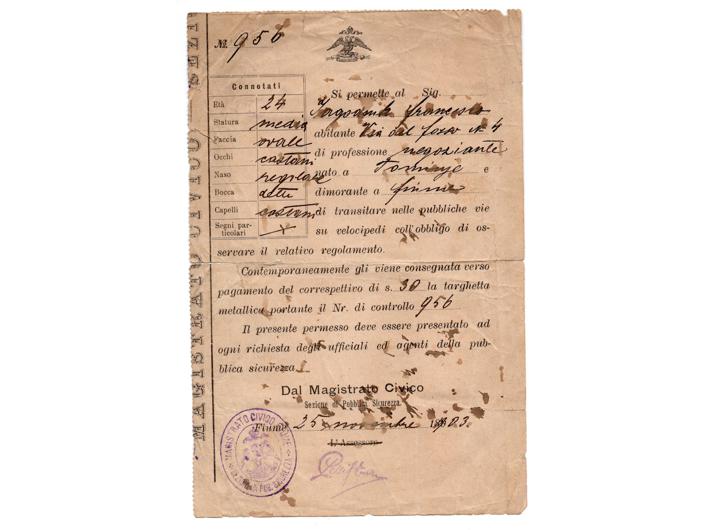 № 956
Connotati
Età 24
Statura media
Faccia ovale
Occhi castani
Naso regolare
Bocca detta
Capelli castani
Segni par-
ticolari
Si permette al Sig.
Francesco
abitante Via del fosso N. 4
di professione negoziante
nato a e
dimorante a Fiume
di transitare nelle pubbliche vie
su velocipedi coll'obbligo di os-
servare il relativo regolamento.
Contemporaneamente gli viene consegnata verso
pagamento del correspettivo di s. 30 la targhetta
metallica portante il Nr. di controllo 956
Il presente permesso deve essere presentato ad
ogni richiesta degli ufficiali ed agenti della pub-
blica sicurezza.
Dal Magistrato Civico
Sezione di Pubblica Sicurezza.
Fiume 25 novembre 1903.
L'Assessore
MAGISTRATO CIVICO FIUME
MAGISTRATO CIVICO